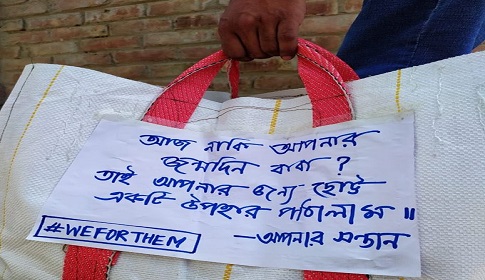 আজ নাকি আপনার
জন্মদিন বাবা ?
তাই আপনার জন্য ছোট্ট
একটি উপহার পাঠালাম ॥
#WEFORTHEM
—আপনার সন্তান